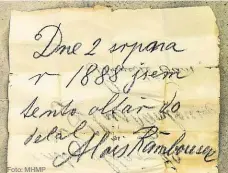 Dne 2 srpna
r 1888 jsem
tento oltář do
delal Alois Rambousek
Foto: MHMP